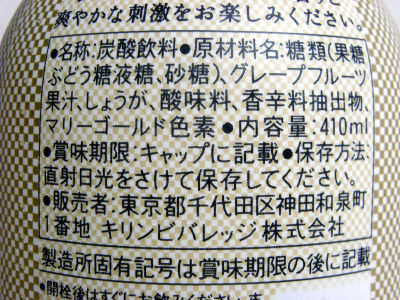 爽やかな刺激をお楽しみください。
●名称:炭酸飲料●原材料名:糖類(果糖
ぶどう糖液糖、砂糖)、グレープフルーツ
果汁、しょうが、酸味料、香辛料抽出物、
マリーゴールド色素●内容量:410ml
●賞味期限:キャップに記載●保存方法:
直射日光をさけて保存してください。
●販売者:東京都千代田区神田和泉町
1番地 キリンビバレッジ株式会社
製造所固有記号は賞味期限の後に記載
●開栓後はすぐにお飲みください。